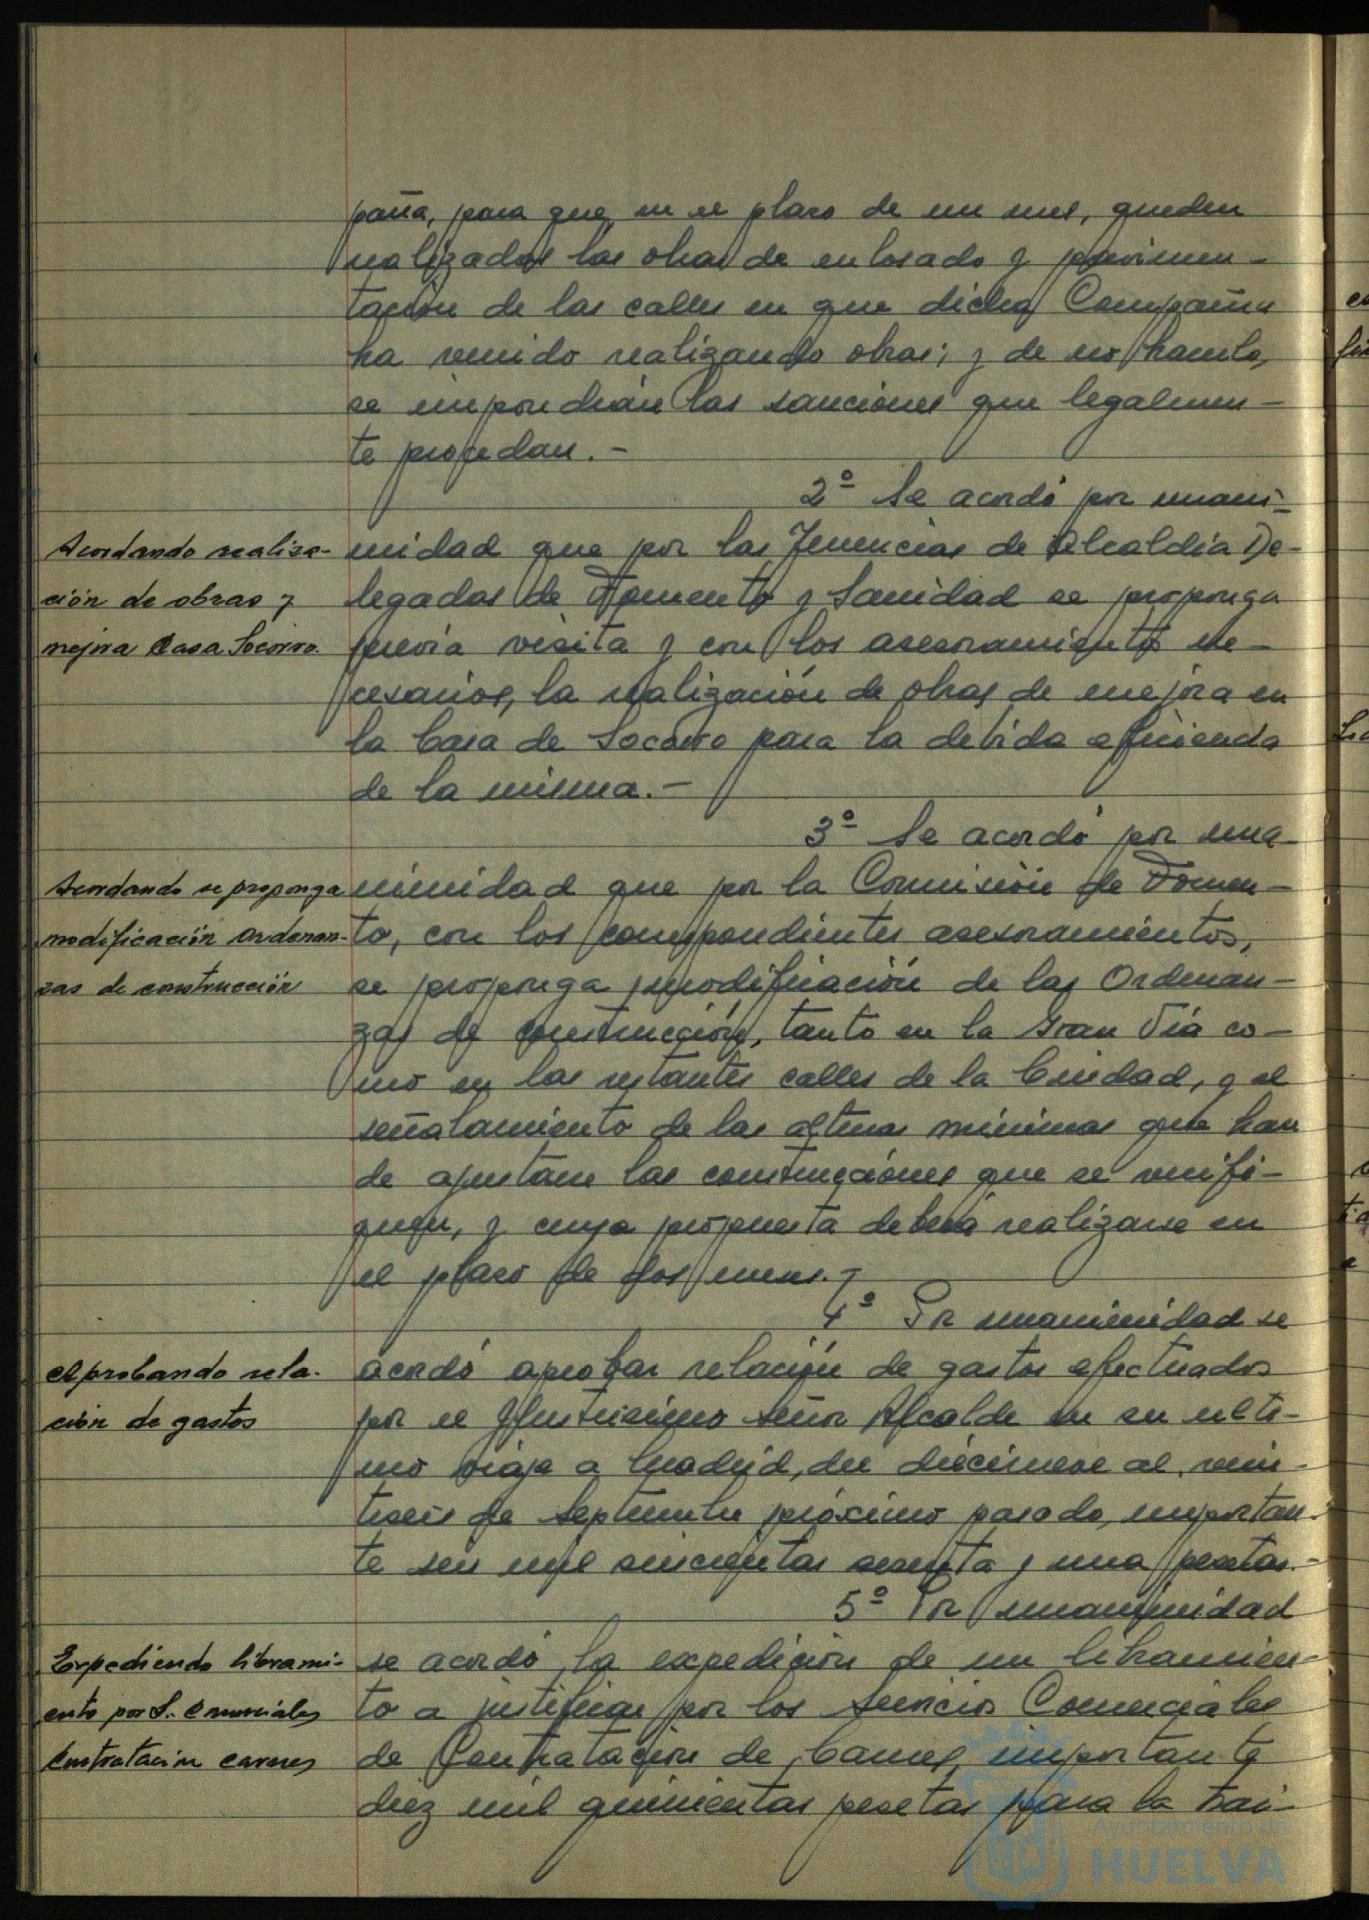 paña, para que en el plazo de un mes, queden
realizadas las obras de enlosado y pavimen-
tación de las calles en que dicha Compañía
ha venido realizando obras; y de no hacerlo,
se impondrán las sanciones que legalmen-
te procedan.-
2º Se acordó por unani-
Acordando realiza- midad que por las Tenencias de Alcaldía De-
ción de obras y legadas de Fomento y Sanidad se proponga
mejora Casa Socorro. previa visita y con los asesoramientos ne-
cesarios, la realización de obras de mejora en
la Casa de Socorro para la debida eficiencia
de la misma.-
3º Se acordó por una-
Acordando se proponga nimidad que por la Comisión de Fomen-
modificación Ordenan- to, con los correspondientes asesoramientos,
zas de construcción se proponga modificación de las Ordenan-
zas de construcción, tanto en la Gran Vía co-
mo en las restantes calles de la Ciudad, y al
señalamiento de las alturas mínimas que han
de ajustarse las construcciones que se verifi-
quen, y cuya propuesta deberá realizarse en
el plazo de dos meses.-
4º Por unanimidad se
Aprobando rela- acordó aprobar relación de gastos efectuados
ción de gastos por el Ilustrísimo Señor Alcalde en su últi-
mo viaje a Madrid, del diecinueve al vein-
tiseis de Septiembre próximo pasado, importan-
te seis mil seiscientas sesenta y una pesetas.-
5º Por unanimidad
Expediendo librami- se acordó la expedición de un libramien-
ento por S. Comerciales to a justificar por los Servicios Comerciales
Contratación carnes de Contratación de Carnes, importante
diez mil quinientas pesetas para la trai-
Ayuntamiento de
HUELVA